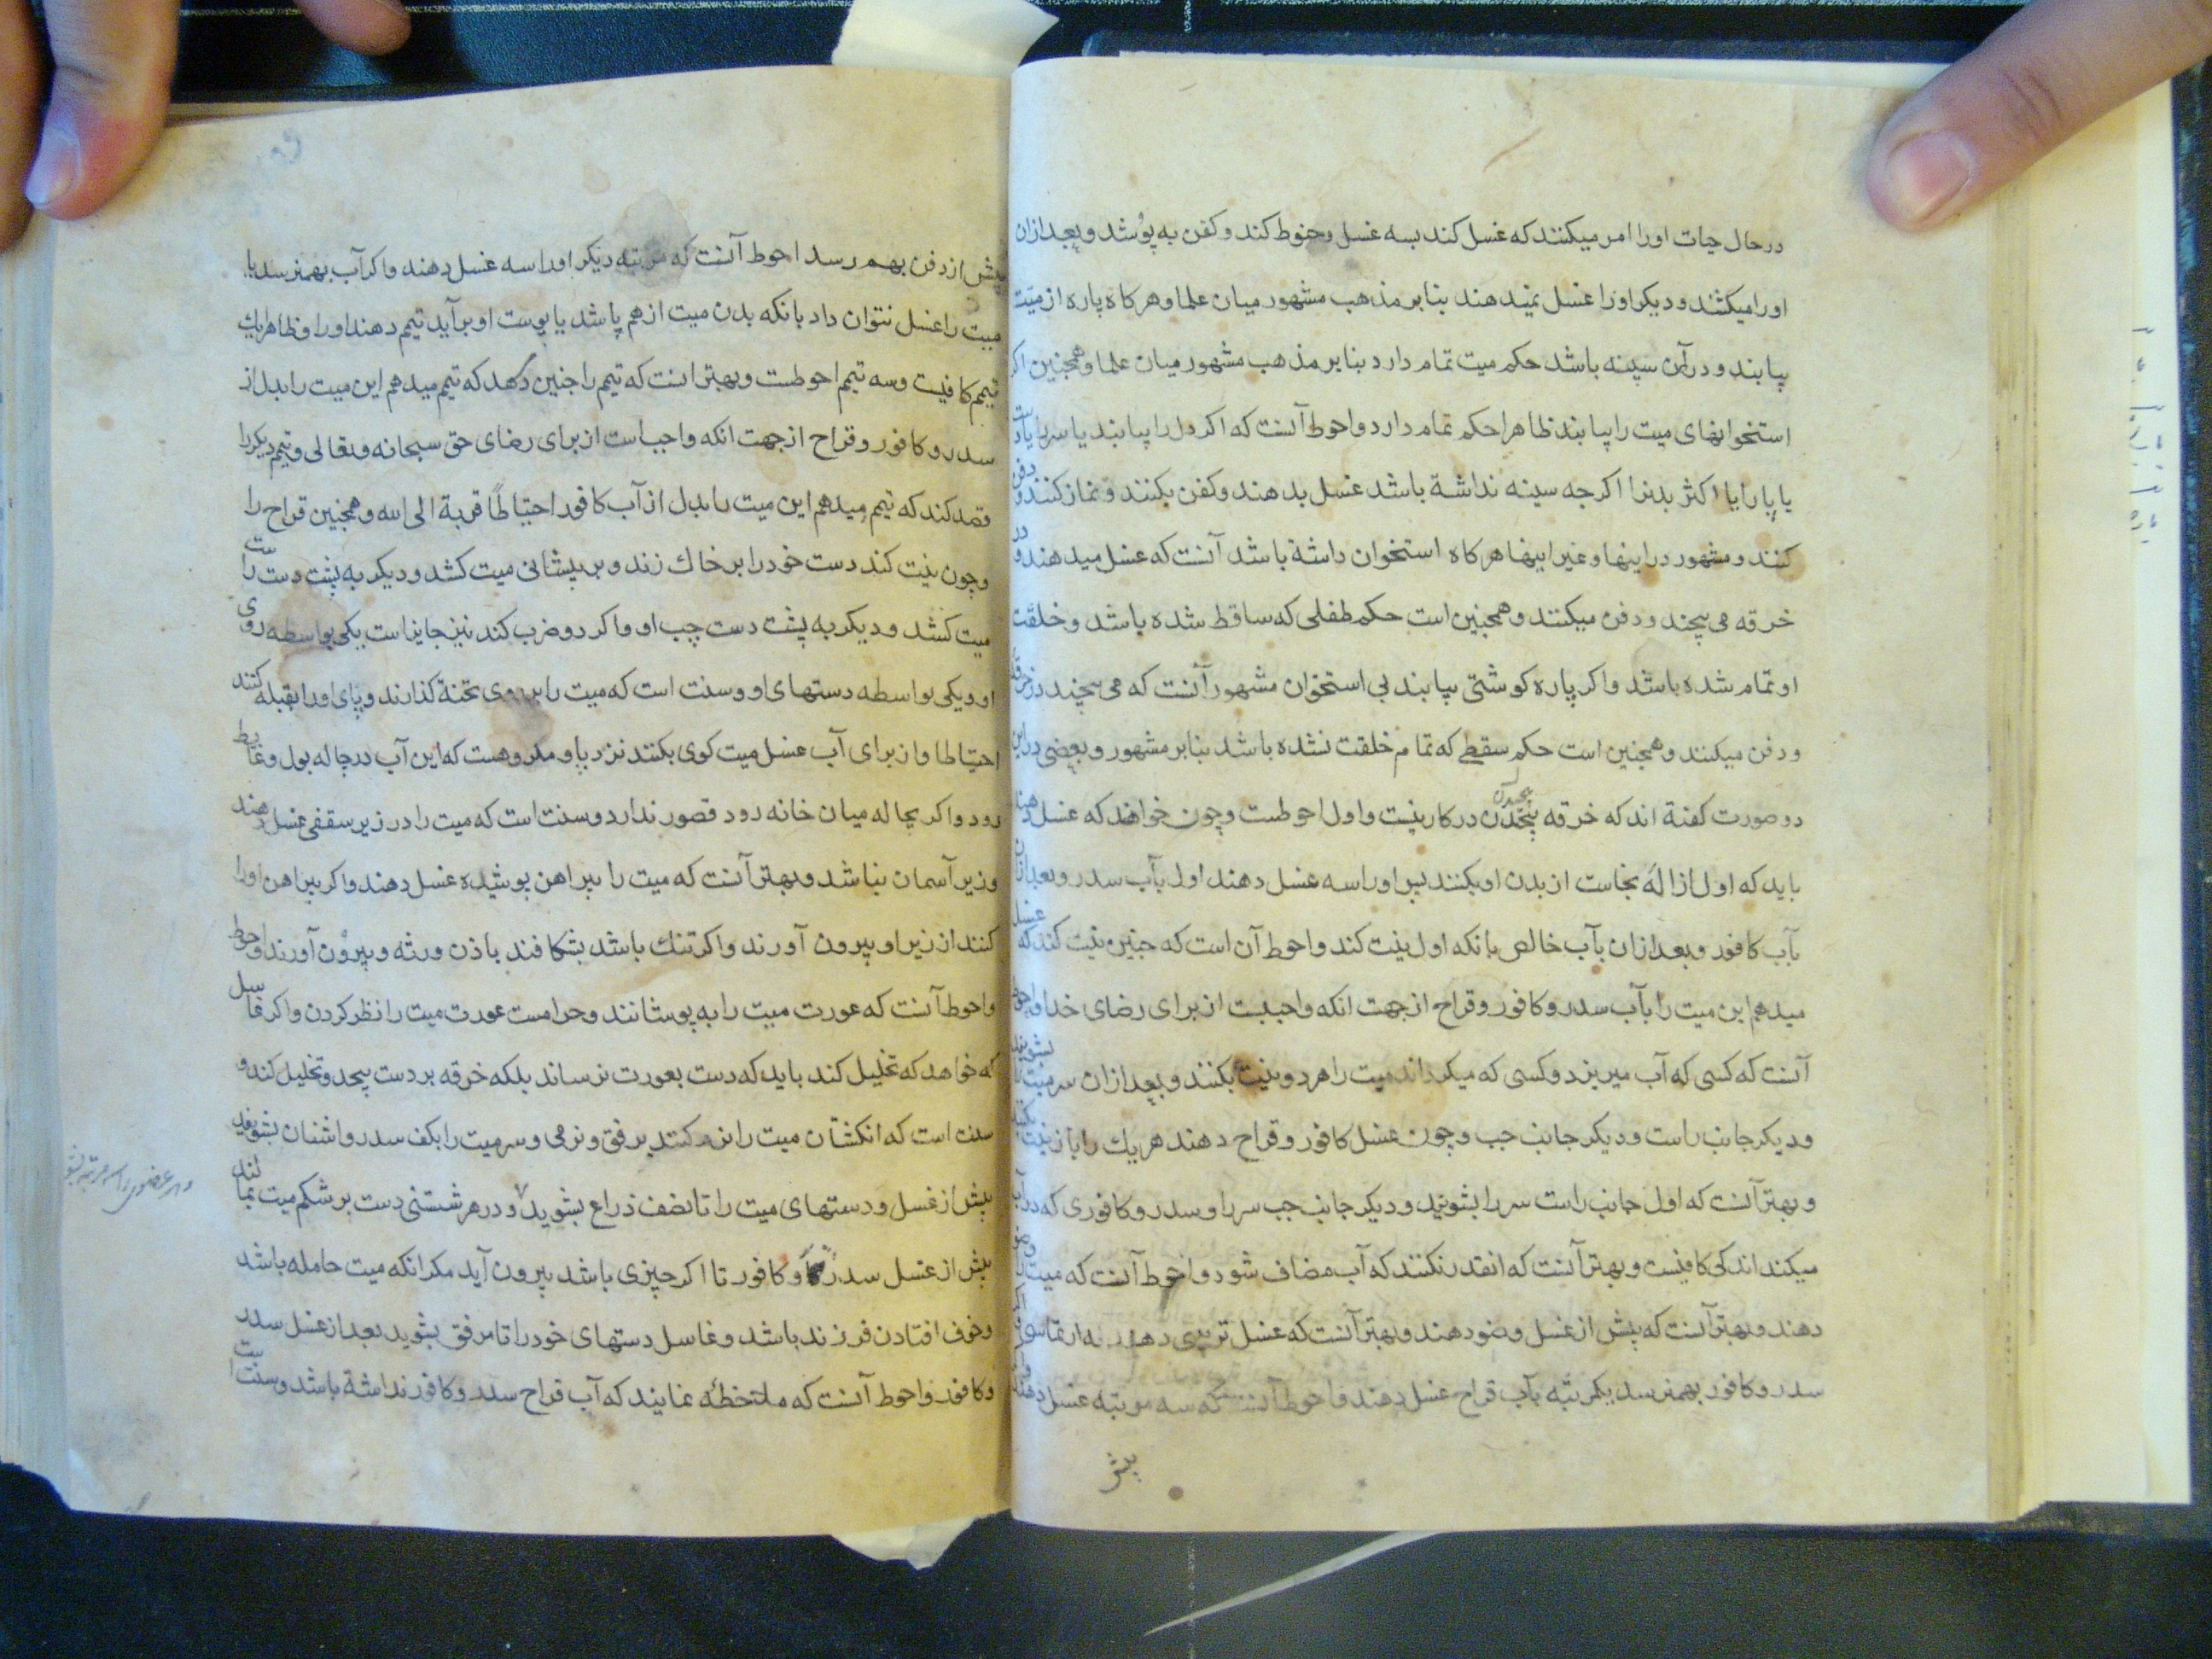 در حال حیات اورا امر میکنند که غسل کند بسه غسل وحنوط کند و کفن به پوشد وبعد ازان
اورا میکشند و دیکر اورا غسل نمیدهند بنابر مذهب مشهور میان علما وهر کاه پاره از میت
بیابند و در آن سینه باشد حکم میت تمام دارد بنابر مذهب مشهور میان علما وهمچنین اکر
استخوانهای میت را بیابند ظاهرا حکم تمام دارد واحوط آنست که اکر دل را بیابند یا سر را یا دست
یا پا را یا اکثر بدنرا اکرچه سینه نداشته باشد غسل بدهند وکفن بکنند و نماز کنند و دفن
کنند و مشهور در اینها و غیر اینها هر کاه استخوان داشته باشد آنست که غسل میدهند و در
خرقه می پیچند و دفن میکنند و همچنین است حکم طفلی که ساقط شده باشد و خلقت
او تمام شده باشد واکر پاره کوشتی بیابند بی استخوان مشهور آنست که می پیچند در خرقه
و دفن میکنند وهمچنین است حکم سقطی که تمام خلقت نشده باشد بنابر مشهور و بعضی در این
دو صورت کفته اند که خرقه پیچیدن در کار نیست واول احوطست وچون خواهند که غسل دهند
باید که اول ازالهٔ نجاست از بدن او بکنند پس اورا سه غسل دهند اول بآب سدر و بعد ازان
بآب کافور وبعد ازان بآب خالص بانکه اول نیت کند واحوط آن است که چنین نیت کند که غسل
میدهم این میت را بآب سدر و کافور و قراح از جهت انکه واجبست از برای رضای خدا واحوط
آنست که کسی که آب میریزد و کسی که میکرداند میت را هر دو نیت بکنند و بعد ازان سر میت را بشویند
و دیکر جانب راست و دیکر جانب چپ وچون غسل کافور و قراح دهند هر یک را باز نیت بکنند
و بهتر آنست که اول جانب راست سر را بشویند و دیکر جانب چپ سر را و سدر و کافوری که در آب
میکنند اندکی کافیست و بهتر آنست که انقدر نکنند که آب مضاف شود واحوط آنست که میت را وضو
دهند و بهتر آنست که پیش از غسل وضو دهند و بهتر آنست که غسل ترتیبی دهند نه ارتماسی و اکر
سدر و کافور بهمنرسد یکمرتبه بآب قراح غسل دهند واحوط آنست که سه مرتبه غسل دهند و اکر
پیش
پیش از دفن بهم رسد احوط آنست که مرتبه دیکر اورا سه غسل دهند واکر آب بهمنرسد یا
میت را غسل نتوان داد بانکه بدن میت از هم پاشد یا پوست او برآید تیمم دهند اورا و ظاهرا یک
تیمم کافیست وسه تیمم احوطست و بهتر انست که تیمم را چنین دهد که تیمم میدهم این میت را بدل از
سدر و کافور و قراح از جهت انکه واجب است از برای رضای حق سبحانه وتعالی وتیمم دیکر را
قصد کند که تیمم میدهم این میت را بدل از آب کافور احتیاطًا قربة الی الله وهمچنین قراح را
وچون نیت کند دست خود را بر خاک زند و بر پیشانی میت کشد و دیکر به پشت دست راست
میت کشد و دیکر به پشت دست چپ او واکر دو ضرب کند نیز جایز است یکی بواسطه روی
او و یکی بواسطه دستهای او و سنت است که میت را بر روی تخته کذارند و پای اورا بقبله کنند
احتیاطا و از برای آب غسل میت کوی بکنند نزد پا و مکروهست که این آب در چاله بول و غایط
رود واکر بچاله میان خانه رود قصور ندارد و سنت است که میت را در زیر سقفی غسل دهند
و زیر آسمان نباشد و بهتر آنست که میت را پیراهن پوشیده غسل دهند واکر پیراهن اورا
کنند از زیر او بیرون آورند واکر تنک باشد بشکافند باذن ورثه و بیرون آورند و احوط
واحوط آنست که عورت میت را به پوشانند وحرامست عورت میت را نظر کردن واکر غاسل
که خواهد که تخلیل کند باید که دست بعورت نرساند بلکه خرقه بر دست پیچد و تخلیل کند و
سنت است که انکشتان میت را نرم کنند برفق و نرمی و سر میت را بکف سدر و اشنان بشویند
پیش از غسل و دستهای میت را تا نصف ذراع بشوید و در هر شستنی دست بر شکم میت بمالند
پیش از غسل سدر و کافور تا اکر چیزی باشد بیرون آید مکر انکه میت حامله باشد
وخوف افتادن فرزند باشد و غاسل دستهای خود را تا مرفق بشوید بعد از غسل سدر
و کافور واحوط آنست که ملاحظه نمایند که آب قراح سدر و کافور نداشته باشد وسنت است
و هر عضوی را سه مرتبه بشو